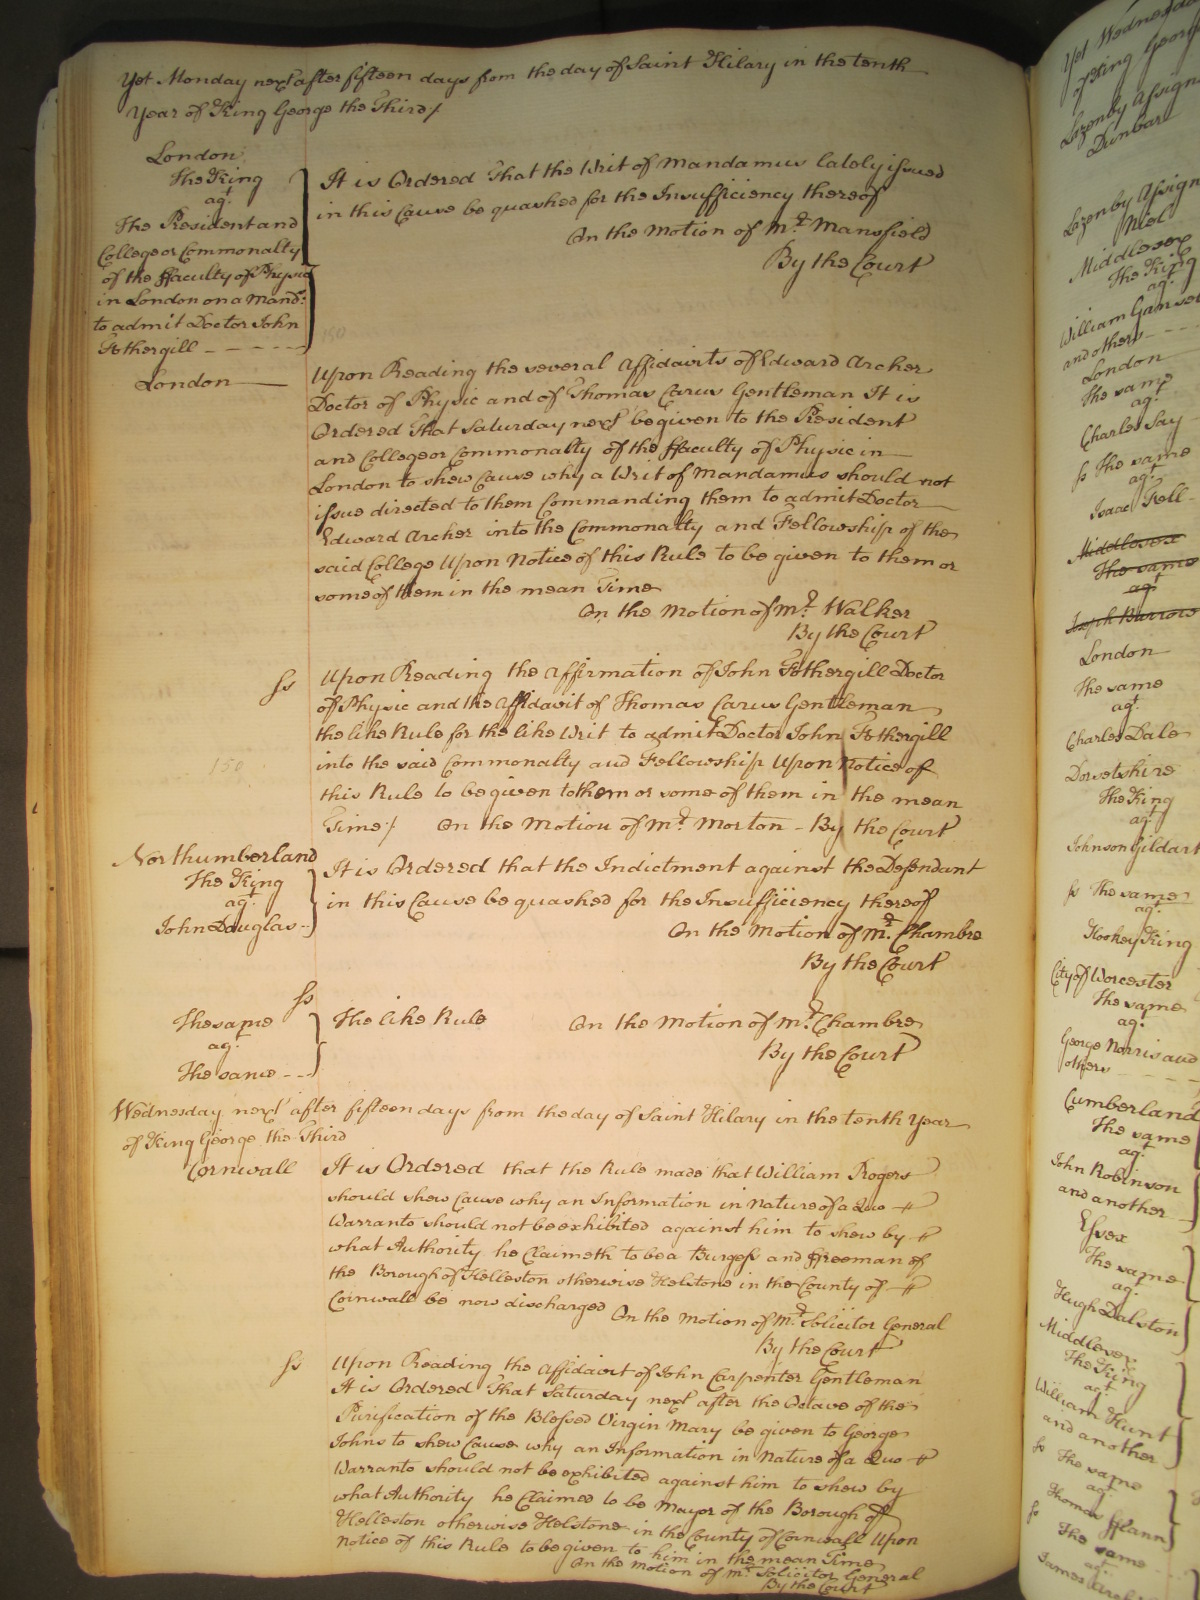 Yet Monday next after fifteen days from the day of Saint Hilary in the tenth
Year of King George the Third/
London
The King
agt.
The President and
College or Commonalty
of the ffaculty of Physic
in London on a Mand:
to admit Doctor John
Fothergill
It is Ordered That the Writ of Mandamus lately issued
in this Cause be quashed for the Insufficiency thereof
On the Motion of Mr. Mansfield
By the Court
London
Upon Reading the several Affidavits of Edward Archer
Doctor of Physic and of Thomas Carus Gentleman It is
Ordered That Saturday next be given to the President
and College or Commonalty of the ffaculty of Physic in
London to shew Cause why a Writ of Mandamus should not
issue directed to them Commanding them to admit Doctor
Edward Archer into the Commonalty and Fellowship of the
said College Upon Notice of this Rule to be given to them or
some of them in the mean Time
On the Motion of Mr. Walker
By the Court
ss
Upon Reading the Affirmation of John Fothergill Doctor
of Physic and the Affidavit of Thomas Carus Gentleman
the like Rule for the like Writ to admit Doctor John Fothergill
into the said Commonalty and Fellowship Upon Notice of
this Rule to be given to them or some of them in the mean
Time/ On the Motion of Mr. Morton - By the Court
150
Northumberland
The King
agt.
John Douglas
It is Ordered that the Indictment against the Defendant
in this Cause be quashed for the Insufficiency thereof
On the Motion of Mr. Chambre
By the Court
ss
The same
agt.
The same
The like Rule On the Motion of Mr. Chambre
By the Court
Wednesday next after fifteen days from the day of Saint Hilary in the tenth Year
of King George the Third
Cornwall
It is Ordered that the Rule made that William Rogers
should shew Cause why an Information in Nature of a Quo
Warranto should not be exhibited against him to shew by
what Authority he Claimeth to be a Burgess and ffreeman of
the Borough of Helleston otherwise Helstone in the County of
Cornwall be now discharged On the Motion of Mr. Solicitor General
By the Court
ss
Upon Reading the Affidavit of John Carpenter Gentleman
It is Ordered That Saturday next after the Octave of the
Purification of the Blessed Virgin Mary be given to George
Johns to shew Cause why an Information in Nature of a Quo
Warranto should not be exhibited against him to shew by
what Authority he Claimes to be Mayor of the Borough of
Helleston otherwise Helstone in the County of Cornwall Upon
Notice of this Rule to be given to him in the mean Time
On the Motion of Mr. Solicitor General
By the Court
Yet Wednesday
of King George
Lazenby Assign
Dunbar
Lazenby Assign
Niel
Middlesex
The King
agt.
William
and others
London
The same
agt.
Charles Say
ss The same
agt.
Isaac Fell
Middlesex
The same
agt.
Joseph Burrows
London
The same
agt.
Charles Dale
Dorsetshire
The King
agt.
Johnson Gildart
ss The same
agt.
Hookey King
City of Worcester
The same
agt.
George Norris and
others
Cumberland
The same
agt.
John Robinson
and another
Essex
The same
agt.
Hugh Dalston
Middlesex
The King
agt.
William Hunt
and another
ss The same
agt.
Thomas fflann
ss The same
agt.
James